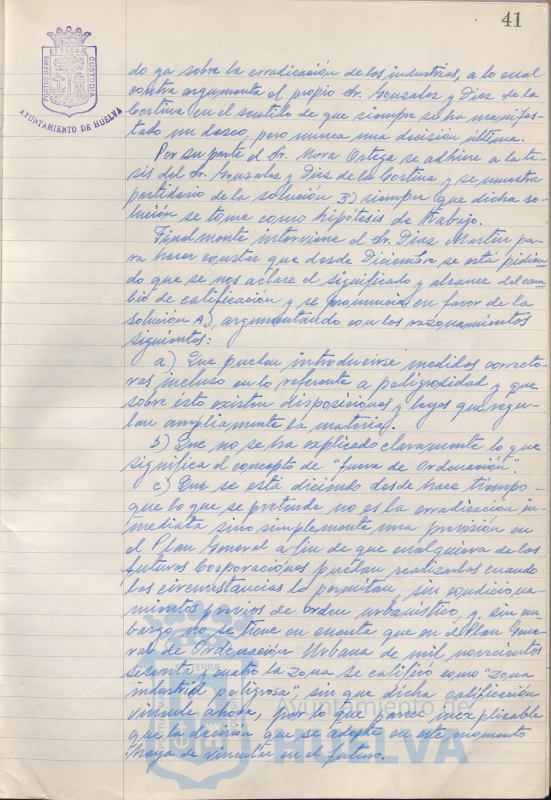 41
PORTUS MARIS ET TERRÆ CUSTODIA
AYUNTAMIENTO DE HUELVA
do ya sobre la erradicación de las industrias, a lo cual
contra argumenta el propio Sr. Gonzalez y Diez de la
Cortina en el sentido de que siempre se ha manifes-
tado un deseo, pero nunca una decisión última.
Por su parte el Sr. Mora Ortega se adhiere a la te-
sis del Sr. Gonzalez y Diez de la Cortina y se muestra
partidario de la solución B) siempre que dicha so-
lución se tome como hipótesis de trabajo.
Finalmente interviene el Sr. Diaz Martin pa-
ra hacer constar que desde Diciembre se está pidien-
do que se nos aclare el significado y alcance del cam-
bio de calificación y se pronuncia en favor de la
solución A), argumentando con los razonamientos
siguientes:
a) Que pueden introducirse medidas correcto-
ras incluso en lo referente a peligrosidad y que
sobre ésto existen disposiciones y leyes que regu-
lan ampliamente la materia.
b) Que no se ha explicado claramente lo que
significa el concepto de "fuera de Ordenación".
c) Que se está diciendo desde hace tiempo
que lo que se pretende no es la erradicación in-
mediata sino simplemente una previsión en
el Plan General a fin de que cualquiera de las
futuras Corporaciones puedan realizarlas cuando
las circunstancias lo permitan, sin condiciona-
mientos previos de orden urbanístico, y, sin em-
bargo, no se tiene en cuenta que en el Plan Gene-
ral de Ordenación Urbana de mil novecientos
sesenta y cuatro la zona se calificó como "zona
industrial peligrosa", sin que dicha calificación
vincule ahora, por lo que parece inexplicable
que la decisión que se adopte en este momento
haya de vincular en el futuro.
Ayuntamiento de
HUELVA